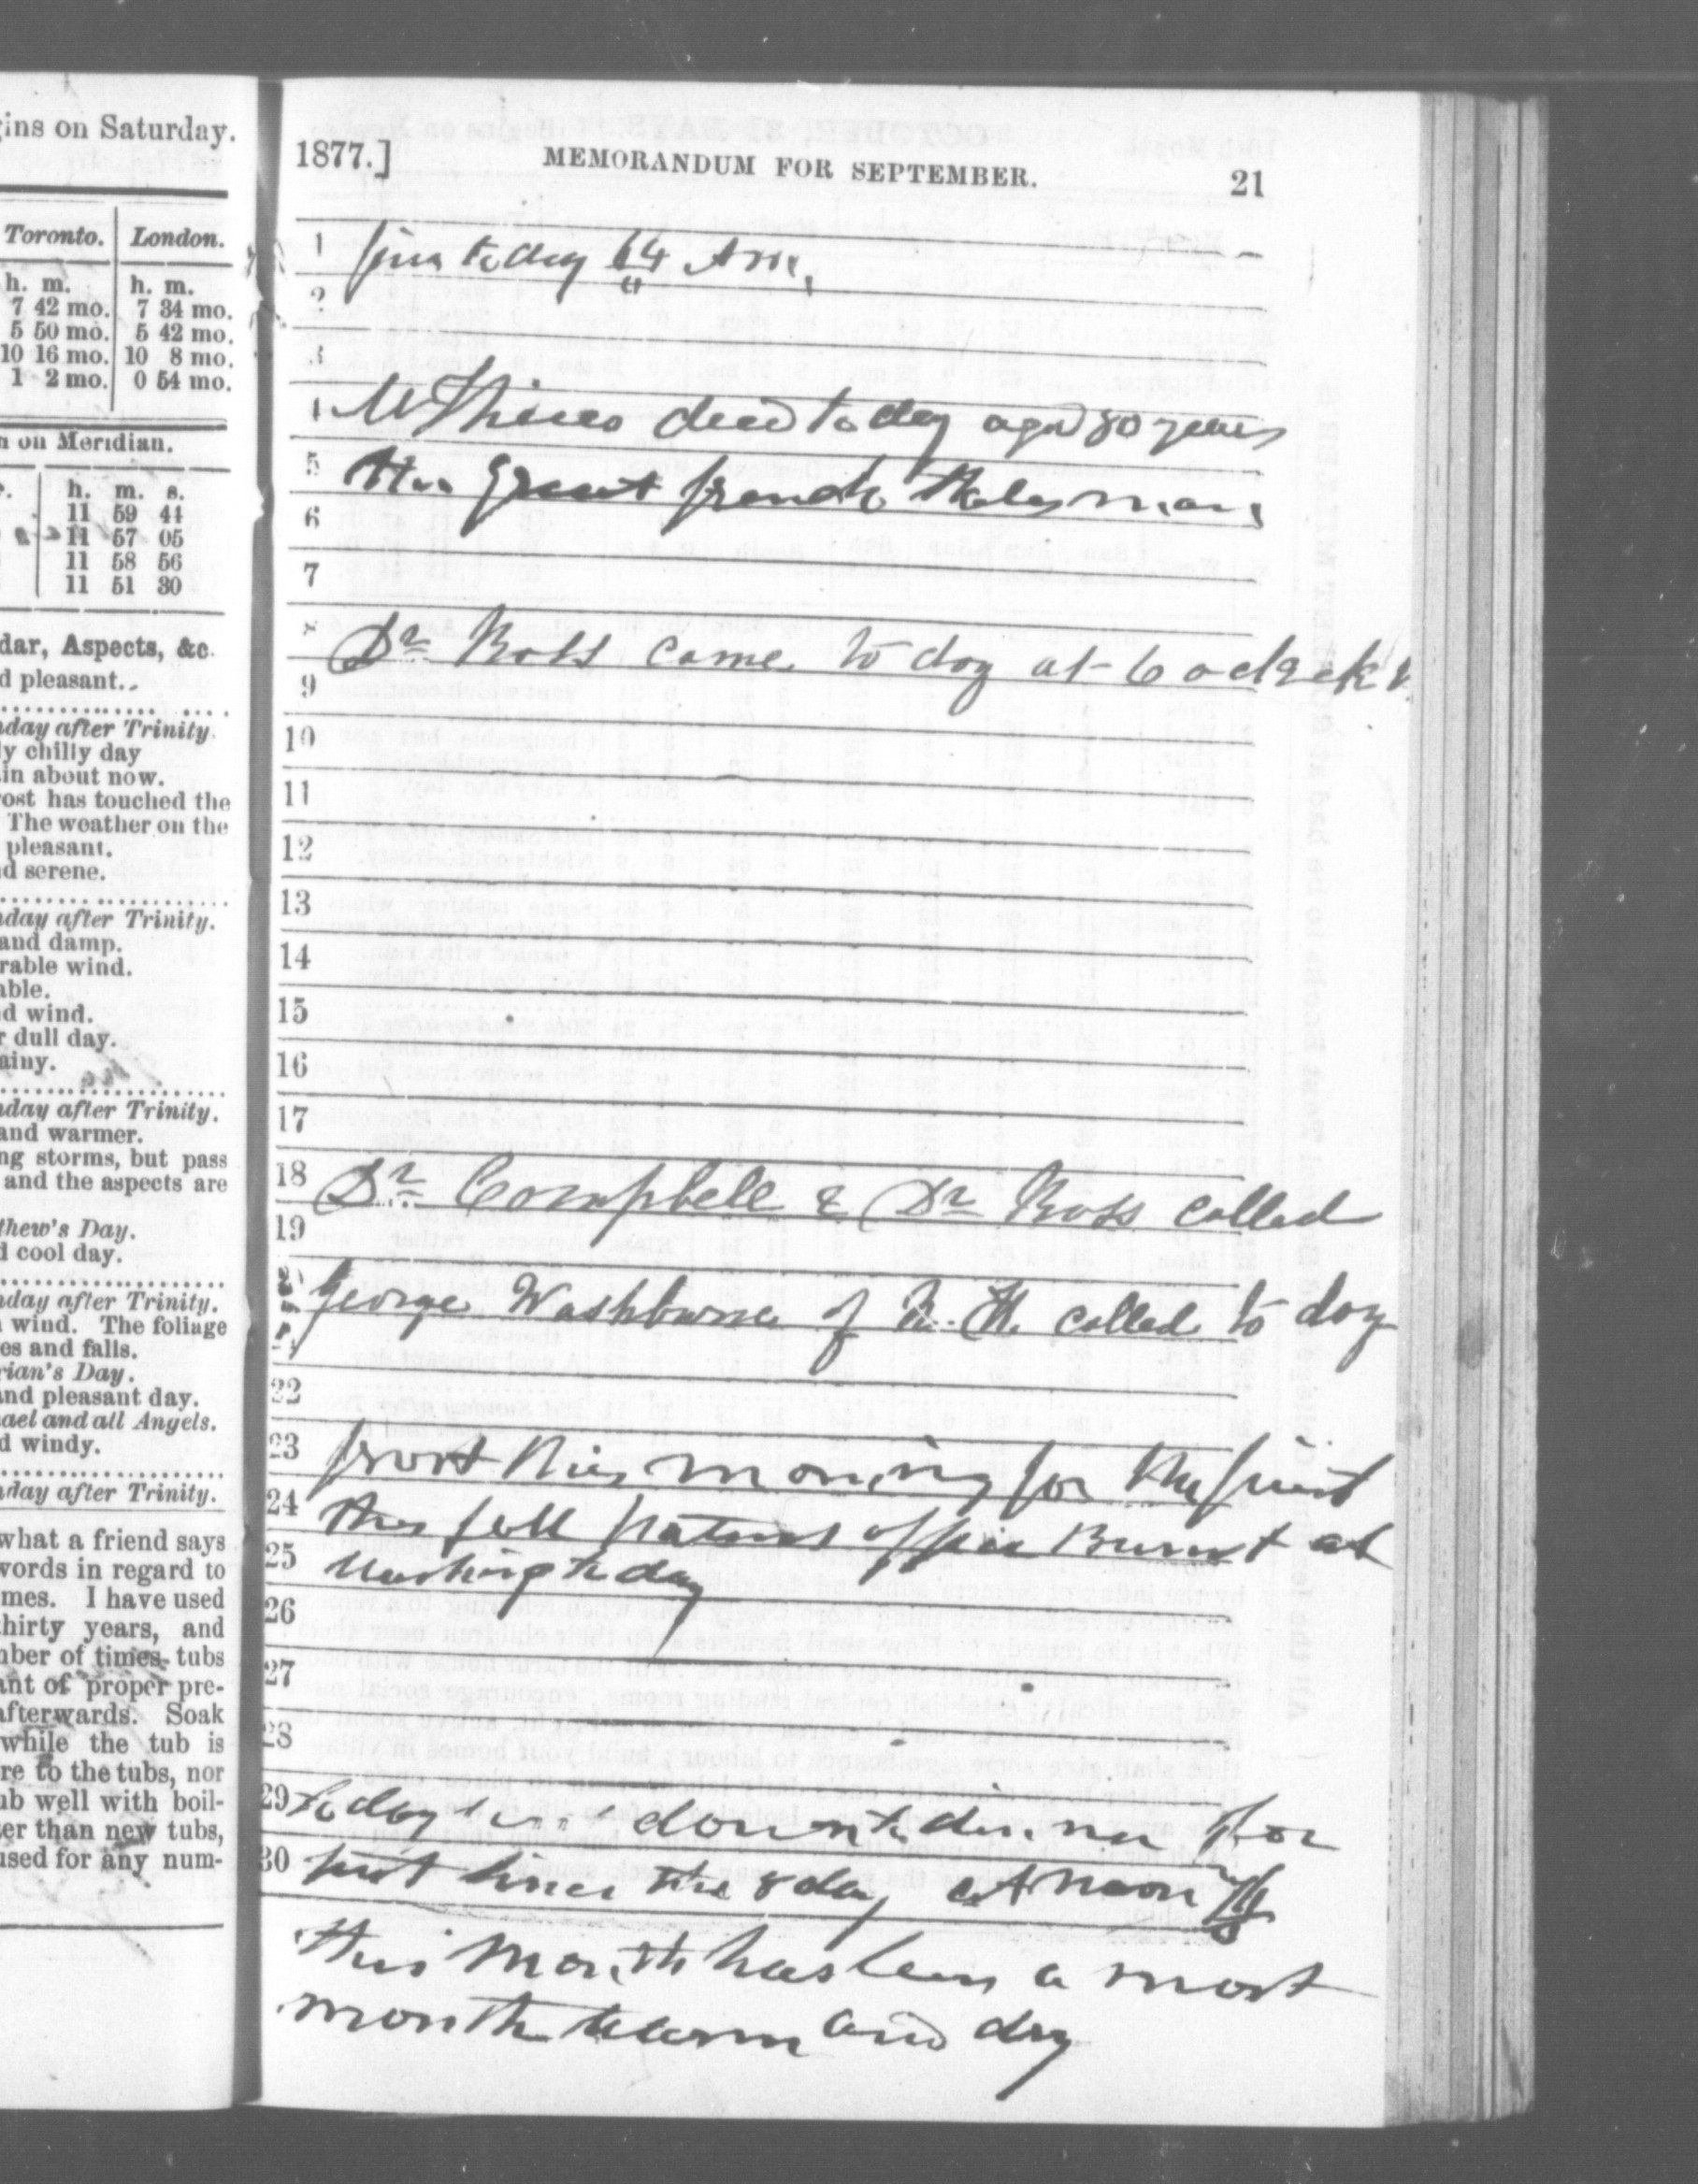 gins on Saturday.
Toronto. London.
h. m. h. m.
7 42 mo. 7 34 mo.
5 50 mo. 5 42 mo.
10 16 mo. 10 8 mo.
1 2 mo. 0 54 mo.
on Meridian.
h. m. s.
11 59 44
11 57 05
11 58 56
11 51 30
dar, Aspects, &c.
d pleasant..
nday after Trinity.
ly chilly day
in about now.
rost has touched the
The weather on the
pleasant.
d serene.
nday after Trinity.
and damp.
rable wind.
able.
d wind.
r dull day.
ainy.
nday after Trinity.
and warmer.
ng storms, but pass
and the aspects are
thew's Day.
d cool day.
nday after Trinity.
wind. The foliage
es and falls.
rian's Day.
and pleasant day.
ael and all Angels.
d windy.
nday after Trinity.
what a friend says
words in regard to
mes. I have used
thirty years, and
nber of times tubs
ant of proper pre-
afterwards. Soak
while the tub is
re to the tubs, nor
ub well with boil-
ter than new tubs,
used for any num-
1877.] MEMORANDUM FOR SEPTEMBER. 21
1 fine today 64
2
3
4 M Thiers died today aged 80 years
5 the Great french Statesman
6
7
8 Dr Ross came to day at 6 oclock
9
10
11
12
13
14
15
16
17
18 Dr Campbell & Dr Ross called
19
George Washburn of called to day
22
23 frost this morning for the first
24 this fall Patent office Burnt at
25 Washing to day
26
27
28
29 today down to dinner for
30 first since the 8 day at Noon
this Month has been a most
month warm and dry